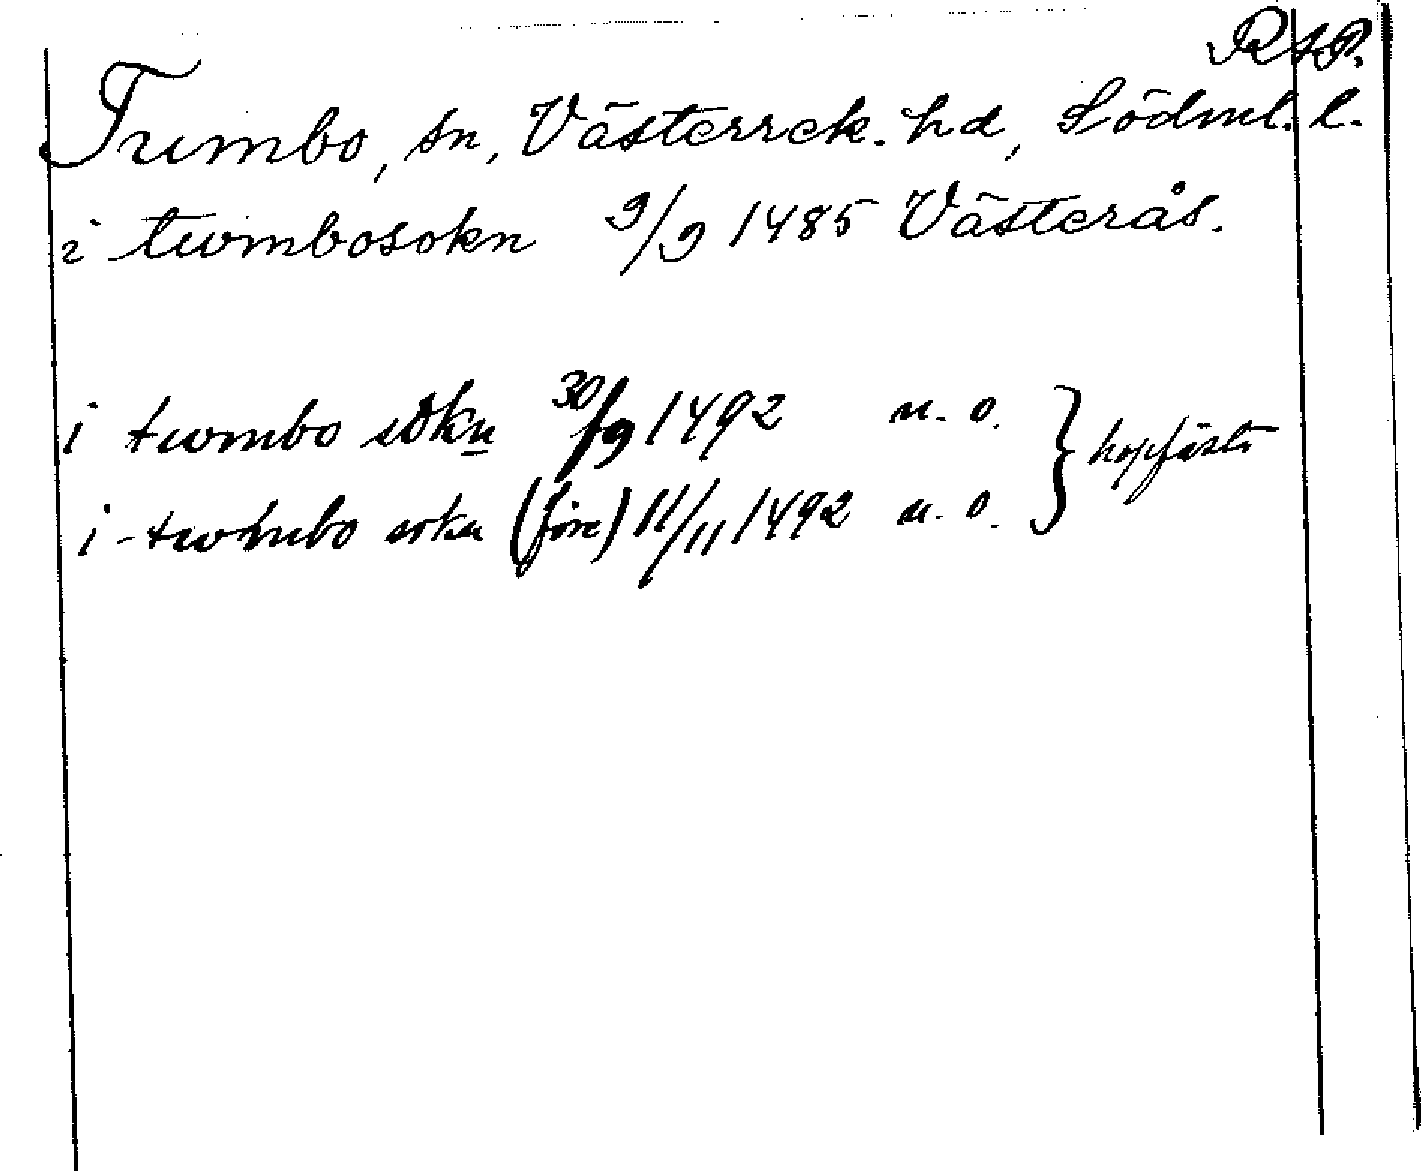 RAP.
Tumbo, sn, Västerrek. hd, Södml. l.
i twmbosokn 9/9 1485 Västerås.
i twmbo sokn 30/9 1492 u. o. } hopfästa
i twmbo sokn (före) 11/11 1492 u. o.